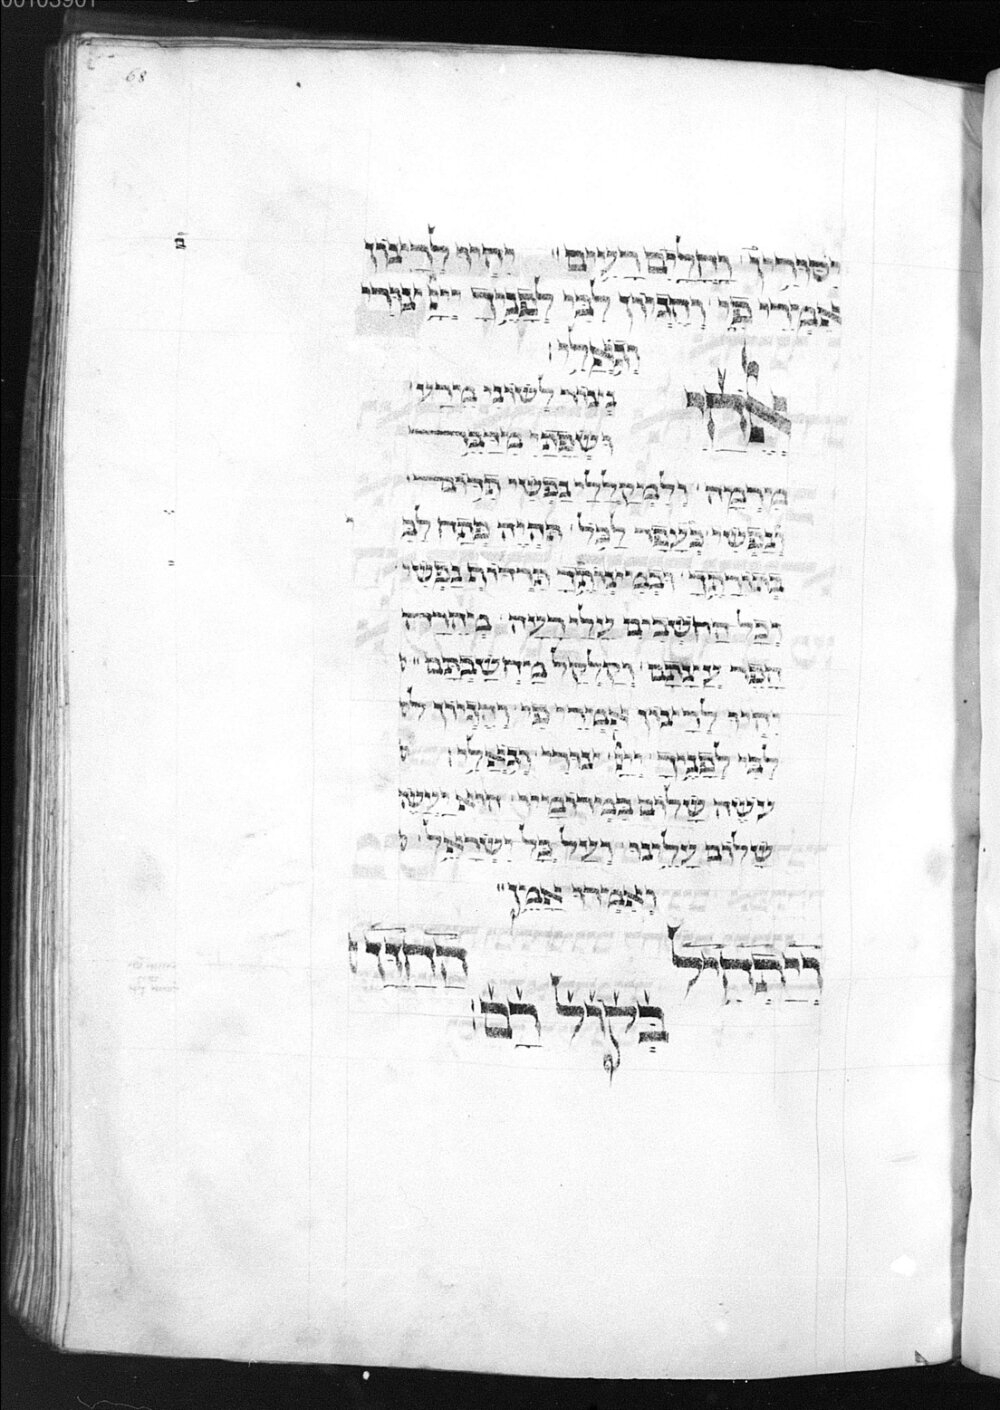 00103901
68
יִסּוּרִין וָחֳלָיִם רָעִים יִהְיוּ לְרָצוֹן
אִמְרֵי פִי וְהֶגְיוֹן לִבִּי לְפָנֶיךָ יְיָ צוּרִי
וְגֹאֲלִי׃
אלהי נְצוֹר לְשׁוֹנִי מֵרָע
וּשְׂפָתַי מִדַּבֵּר
מִרְמָה וְלִמְקַלְלַי נַפְשִׁי תִדּוֹם
וְנַפְשִׁי כְּעָפָר לַכֹּל תִּהְיֶה פְּתַח לִבִּי
בְּתוֹרָתֶךָ וּבְמִצְוֹתֶיךָ תִּרְדּוֹף נַפְשִׁי
וְכָל הַחֹשְׁבִים עָלַי רָעָה מְהֵרָה
הָפֵר עֲצָתָם וְקַלְקֵל מַחְשַׁבְתָּם
יִהְיוּ לְרָצוֹן אִמְרֵי פִי וְהֶגְיוֹן
לִבִּי לְפָנֶיךָ יְיָ צוּרִי וְגֹאֲלִי׃
עֹשֶׂה שָׁלוֹם בִּמְרוֹמָיו הוּא יַעֲשֶׂה
שָׁלוֹם עָלֵינוּ וְעַל כָּל יִשְׂרָאֵל
וְאִמְרוּ אָמֵן
וַיַּתְחִיל הַחַזָּן
בְּקוֹל רָם׃